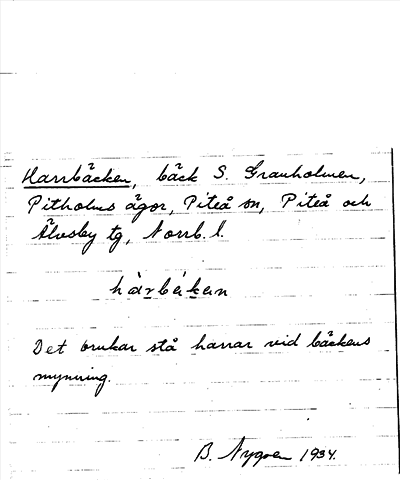 Harrbäcken, bäck S. Granholmen,
Pitholms ägor, Piteå sn, Piteå och
Älvsby tg, Norrb. l.
hàrbékan
Det brukar stå harrar vid bäckens
mynning.
B. Nygren 1934.